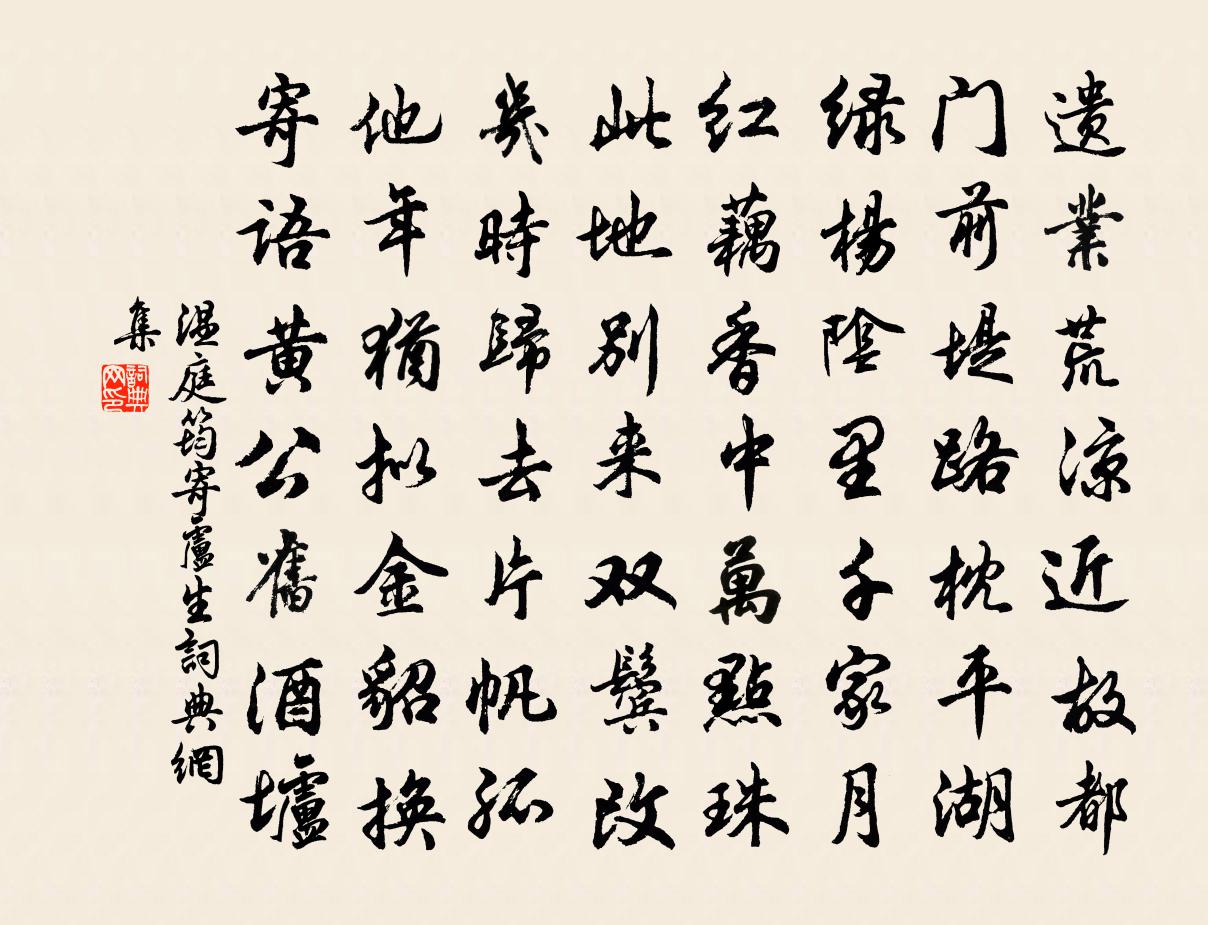 遗業荒涼近故都
门前堤路枕平湖
绿楊陰里千家月
红藕香中萬點珠
此地别来双鬓改
幾時歸去片帆孤
他年猶拟金貂换
寄语黄公舊酒壚
温庭筠寄盧生詞典網
集
詞典网印